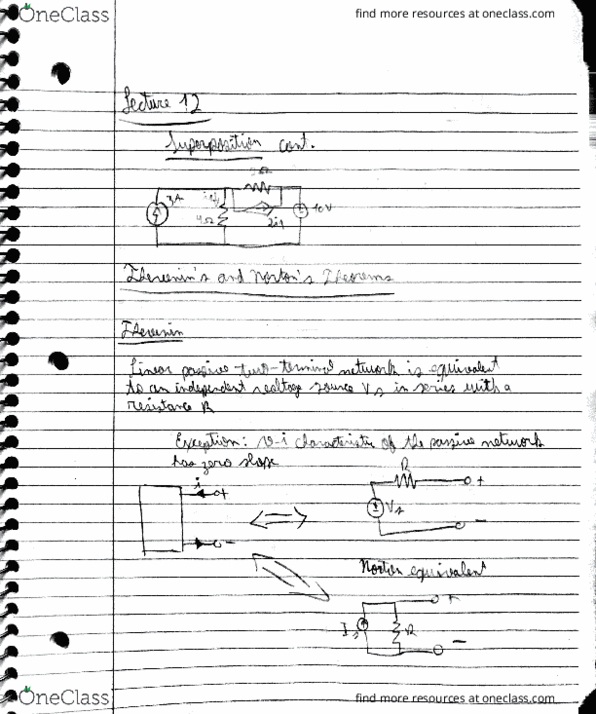 OneClass
find more resources at oneclass.com
Lecture 12
Superposition cont.
3A
4Ω
2i1
10V
Thevenin's and Norton's Theorems
Thevenin
Linear passive two-terminal network is equivalent
to an independent voltage source Vs in series with a
resistance R
Exception: v-i characteristic of the passive network
has zero slope
R
i
+
+
Vs
-
-
Norton equivalent
+
Is
R
-
OneClass
find more resources at oneclass.com